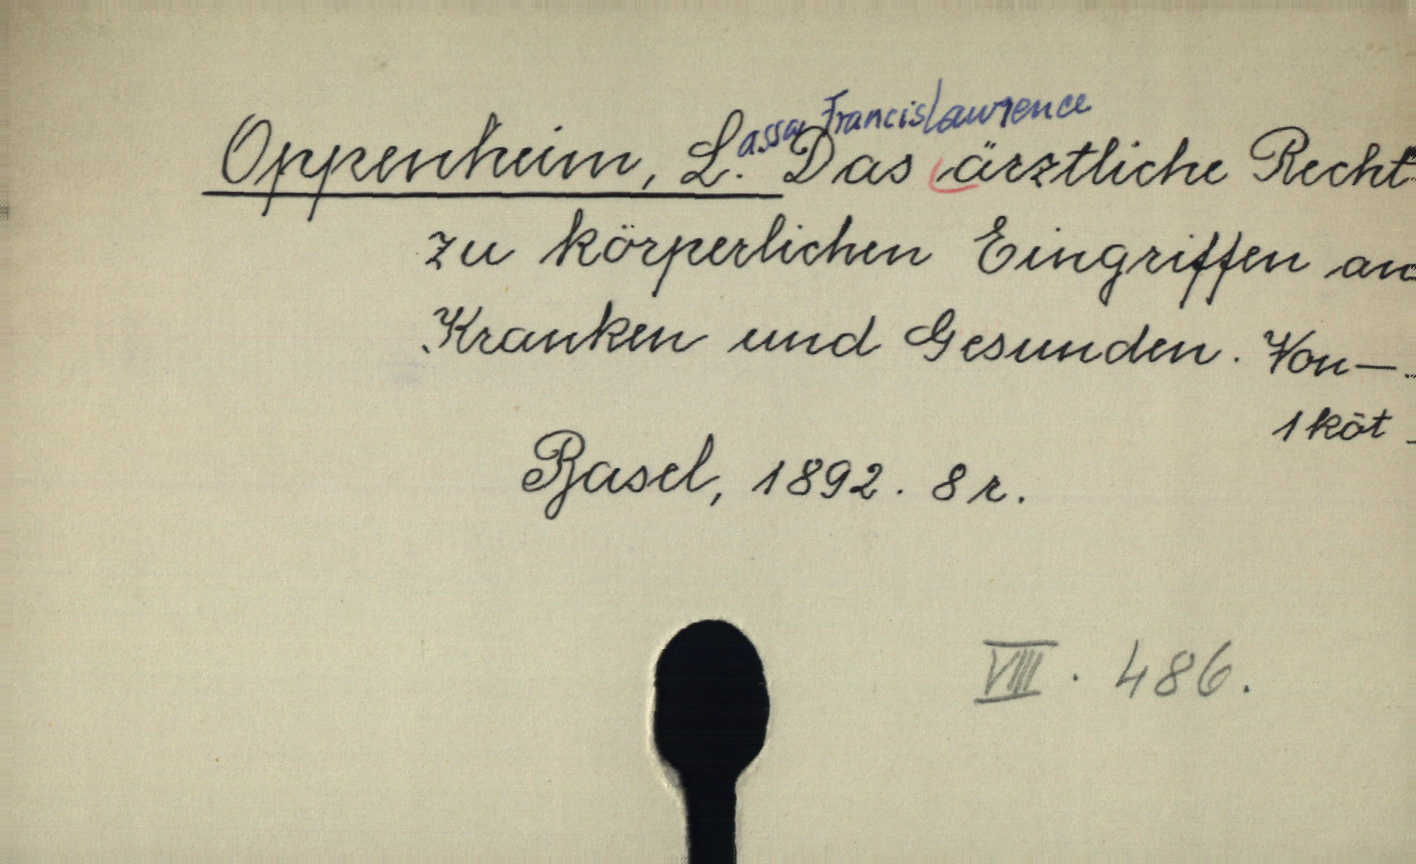 Oppenheim, L.assa Francis Lawrence Das ärztliche Recht
zu körperlichen Eingriffen an
Kranken und Gesunden. Von—.
1 köt
Basel, 1892. 8 r.
VIII. 486.